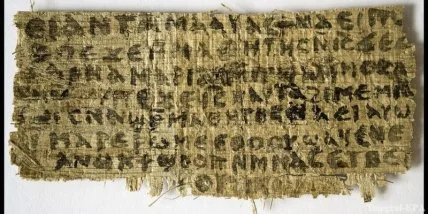 ⲉⲓ ⲁⲛ ⲧⲁⲙⲁⲁⲩ ⲁⲥϯ ⲛⲁⲉⲓ ⲡⲱ
ⲥ ⲡⲉϫⲉ ⲙⲙⲁⲑⲏⲧⲏⲥ ⲛⲓⲥ ϫⲉ ⲥ
ⲁⲣⲛⲁ ⲙⲁⲣⲓⲁⲙ ⲙⲡϣⲁ ⲙⲙⲟⲥ ⲁ
ⲡⲉϫⲉ ⲓⲥ ⲛⲁⲩ ⲧⲁϩⲓⲙⲉ ⲙⲛ
ⲥⲛⲁϣⲣⲙⲁⲑⲏⲧⲏⲥ ⲛⲁⲉⲓ ⲁⲩⲱ
ⲙⲁⲣⲉⲣⲱⲙⲉ ⲉⲑⲟⲟⲩ ϣⲁϥⲉ ⲛⲉ
ⲁⲛⲟⲕ ϯϣⲟⲟⲡ ⲛⲙⲙⲁⲥ ⲉⲧⲃⲉ